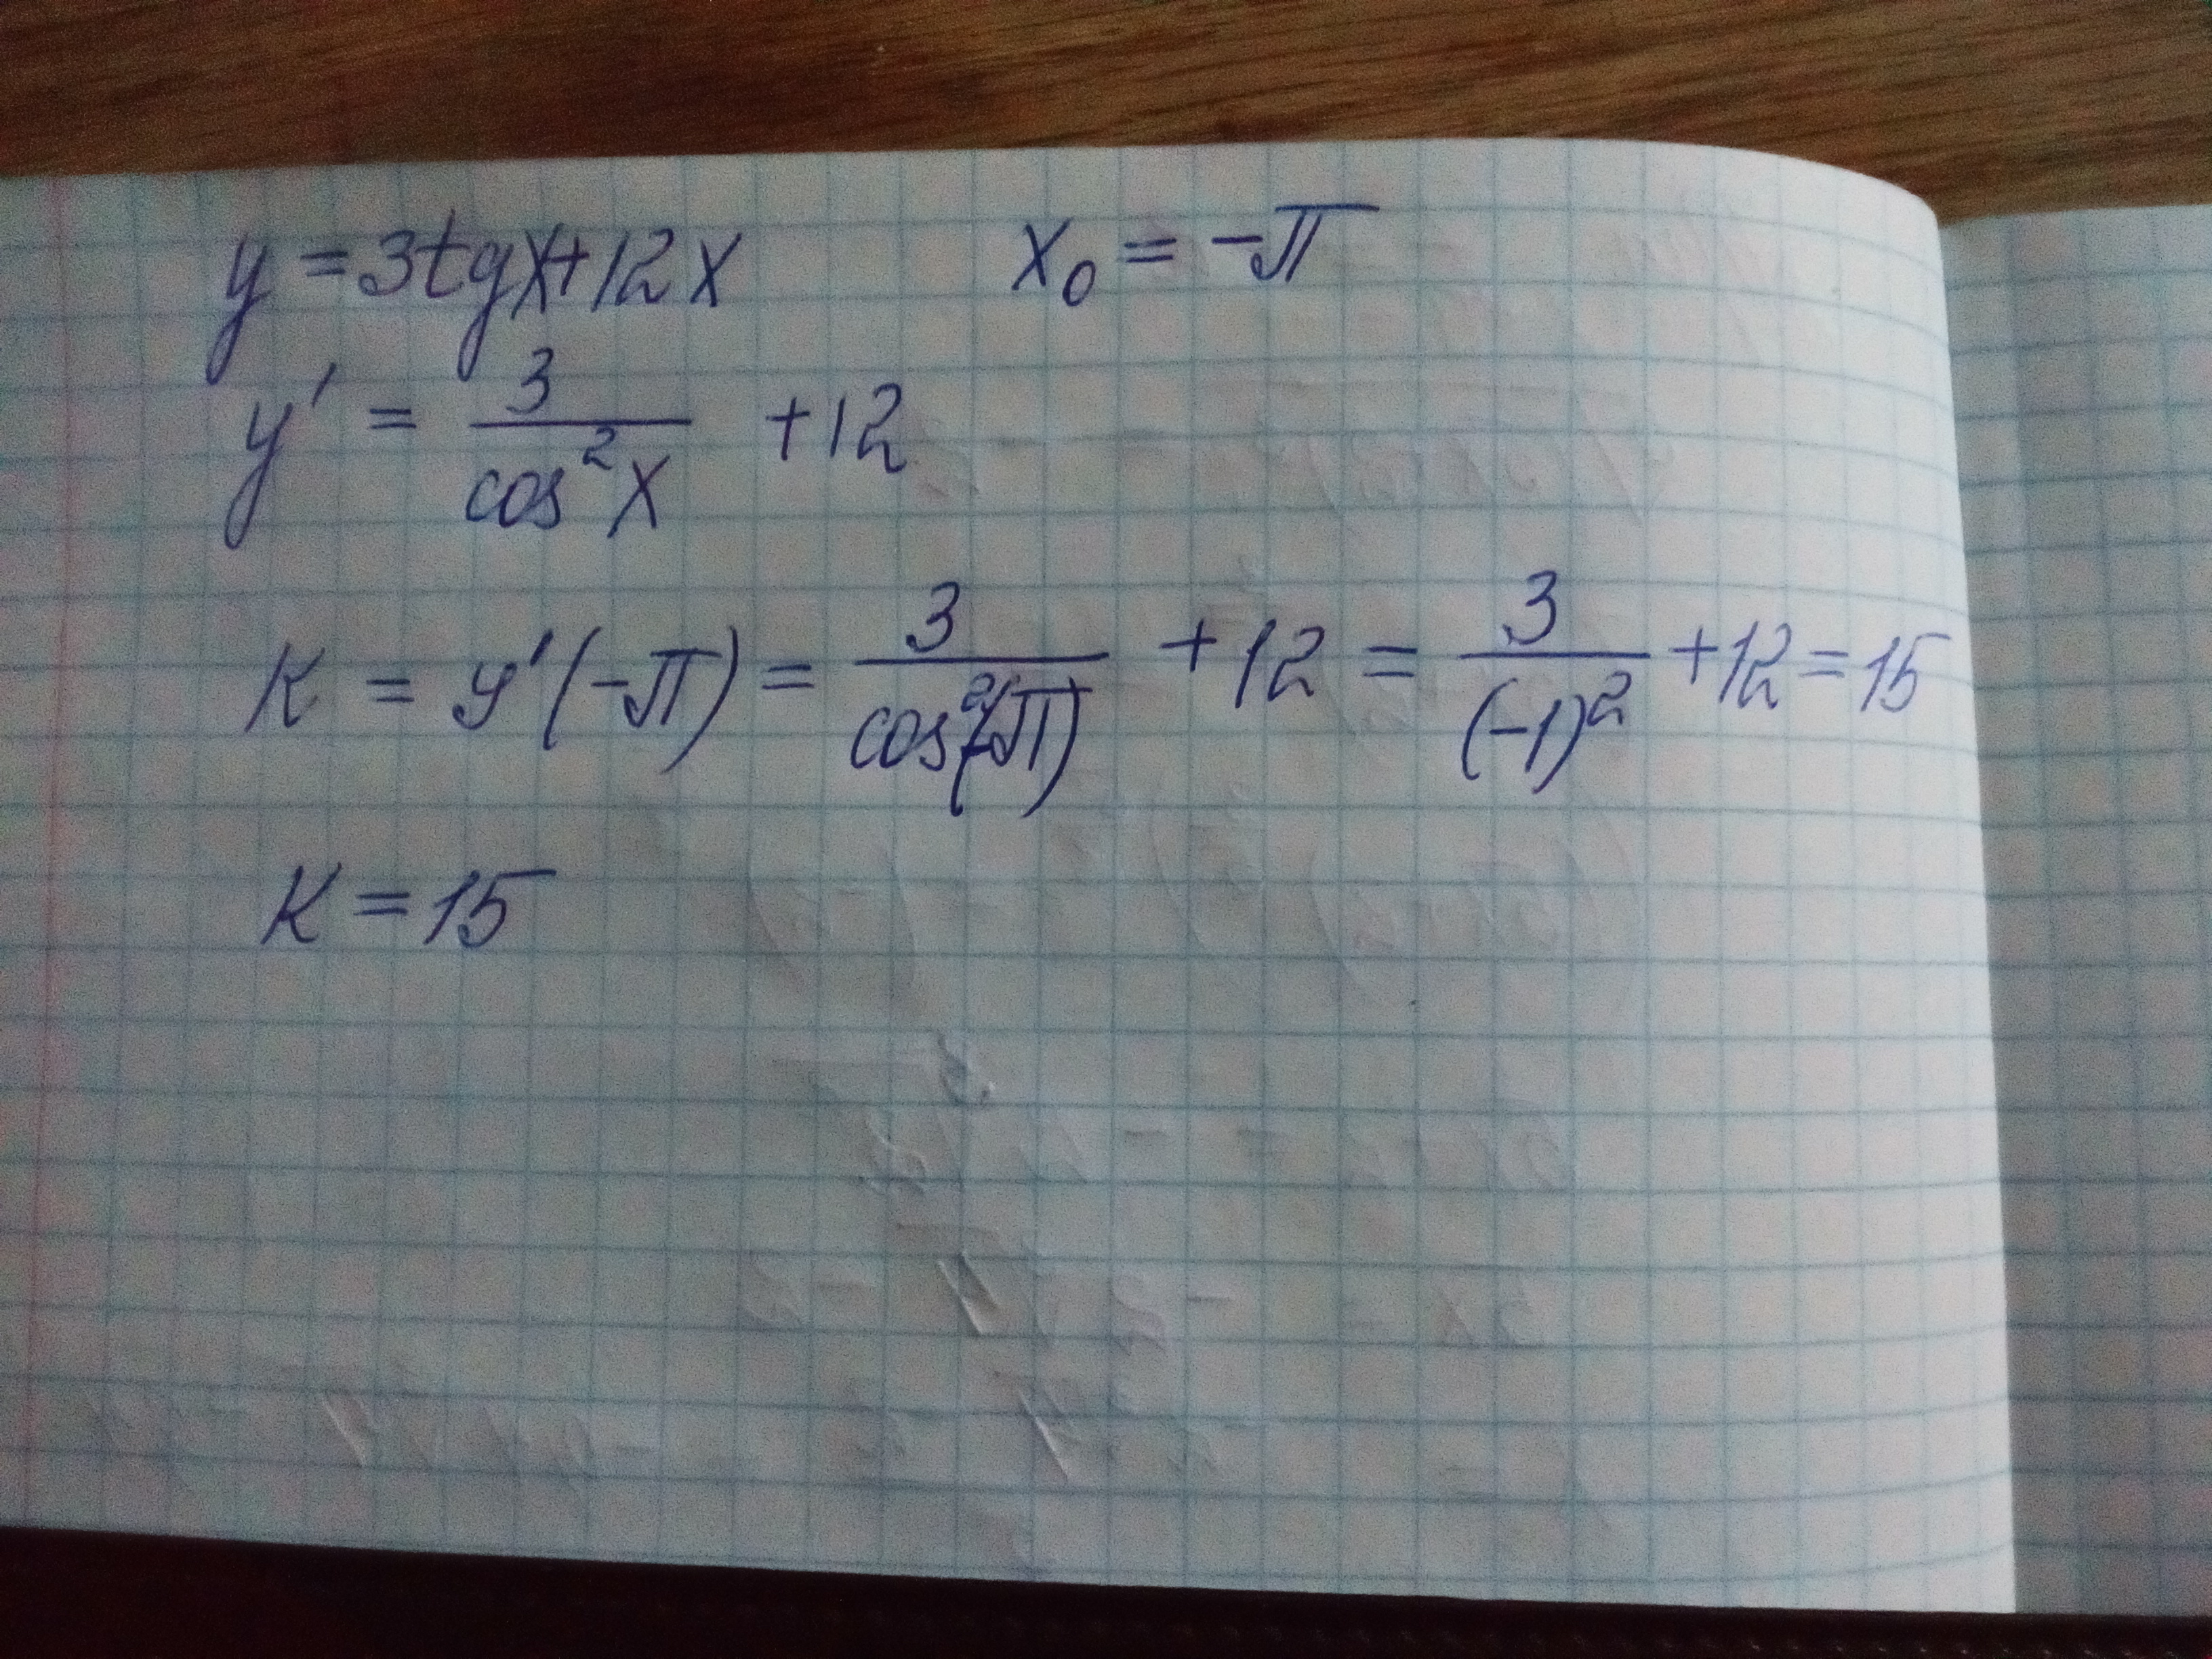 y = 3tgx+12x x₀ = -π
y' = 3/cos²x +12
K = y'(-π) = 3/cos²(-π) +12 = 3/(-1)² +12 = 15
K = 15